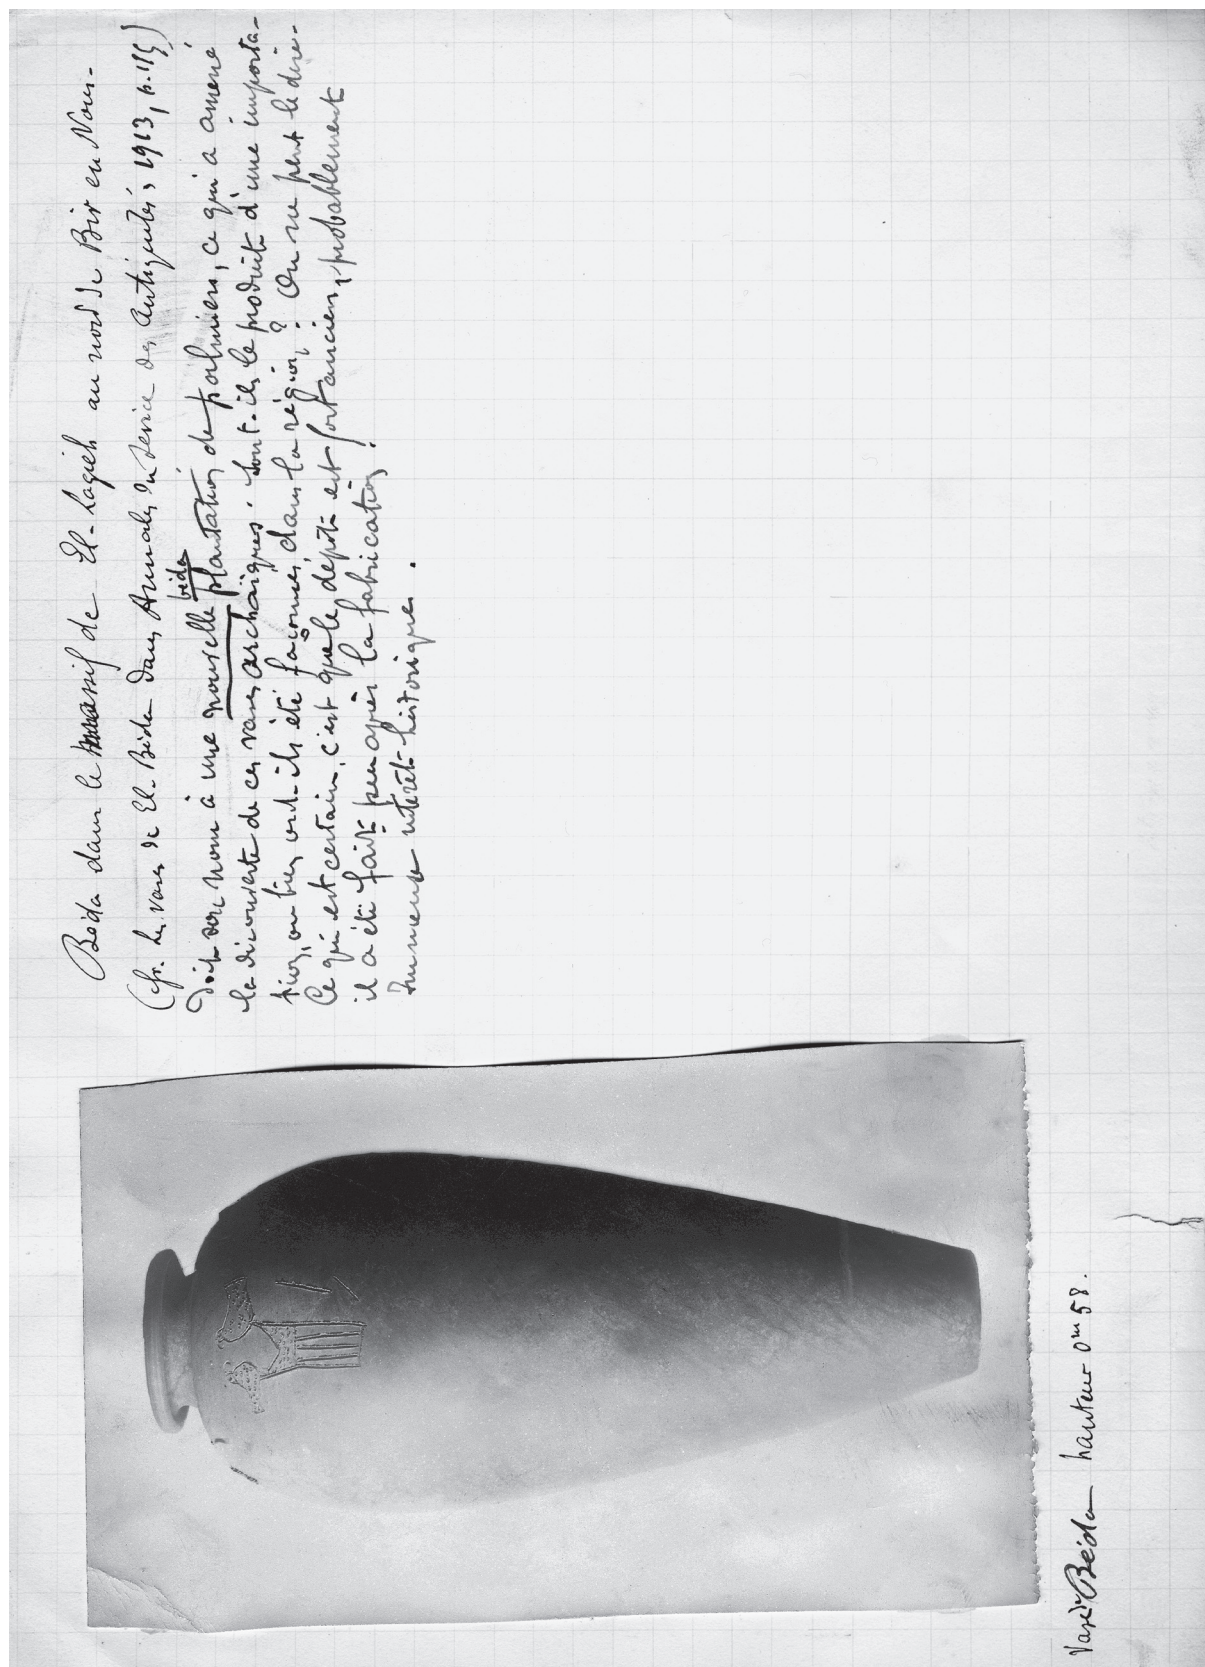 Béda dans le massif de El-Lagieh au nord de Bir en Nous-
(cfr. les vases de El-Béda dans Annales du Service des Antiquités, 1913, p. 115)
Doit son nom à une nouvelle plantation de palmiers, ce qui a amené
béda
la découverte de ces vases archaïques. Sont-ils le produit d'une importa-
tion, ou bien ont-ils été façonnés dans la région? On ne peut le dire.
Ce qui est certain, c'est que le dépôt est fort ancien, probablement
il a été fait peu après la fabrication.
Immense intérêt historique.
Vase de Béda hauteur 0m58.